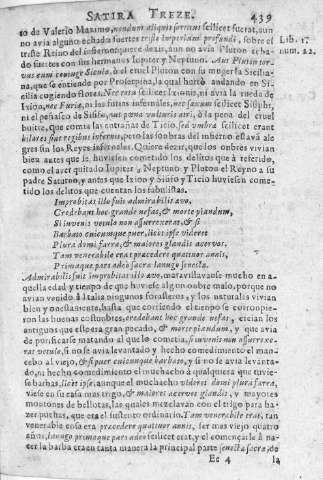 SATIRA TREZE. 439
to de Valerio Maximo, nondum aliquis profundi scilicet fuerat, aun
no avia alguno echado suertes triste imperium profundi, sobre el
triste Reino del infierno: quiere dezir, aun no avia Pluton echa-
do suertes con sus hermanos Iupiter y Neptuno. Aut Pluton tor-
vus cum coniuge Sicula, ò el cruel Pluton con su muger la Sicilia-
na, que se entiende por Proserpina, la qual hurtò andando en Si-
cilia cogiendo flores. Nec rota scilicet Ixionis erat, ni avia la rueda de
Ixion, nec Furiæ, ni las furias infernales, nec saxum scilicet Sisiphi,
ni el peñasco de Sisifo, aut pœna vulturis atri, ò la pena del cruel
buitre, que comia las entrañas de Ticio, sed umbræ scilicet erant
hilares sine regibus infernis, pero las sombras del infierno estavã ale
gres sin los Reyes infernales. Quiere dezir, que los onbres vivian
bien antes que se huviesen cometido los delitos que à referido,
como el aver quitado Iupiter, y Neptuno y Pluton el Reyno a su
padre Saturno, y antes que Ixion y Sisifo y Ticio huviesen come-
tido los delitos que cuentan los fabulistas.
Improbitas illo fuit admirabilis ævo,
Credebant hoc grande nefas, & morte piandum,
Si iuvenis vetulo non assurrexerat, & si
Barbato cuicumque puer, licet ipse videret
Plura domi farra, & maiores glandis acervos.
Tam venerabile erat præcedere quatuor annis,
Primaque par adeò sacræ lanugo senectæ.
Admirabilis fuit improbitas illo ævo, maravillavanse mucho en a-
quella edad y tiempo de que huviese algun onbre malo, porque no
avian venido à Italia ningunos forasteros, y los naturales vivian
bien y onestamente, hasta que corriendo el tiempo se corronpie-
ron las buenas costunbres, credebant hoc grande nefas, creian los
antiguos que es pera gran pecado, & morte piandum, y que avia
de purificarse matando al que lo cometia, si iuvenis non assurrexe-
rat vetulo, si no se avia levantado y hecho comedimiento el man-
cebo al viejo, & si puer cuicunque barbato, y si no se avia levanta-
do, ni hecho comedimiento el muchacho a qualquiera que tuvie-
se barbas, licet ipse, aunque el muchacho videret domi plura farra,
viese en su casa mas trigo, & maiores acervos glandis, y mayores
montones de bellotas, las quales mezclavan con el trigo para ha-
zer puchas, que era el sustento ordinario. Tam venerabile erat, tan
venerable cosa era præcedere quatuor annis, ser mas viejo quatro
años, lanugo primaque par adeò scilicet erat, y el començarle à na-
cer la barba era en tanta manera la principal parte senectæ sacræ, de
Ee 4 la
Lib. 1.
num. 22.